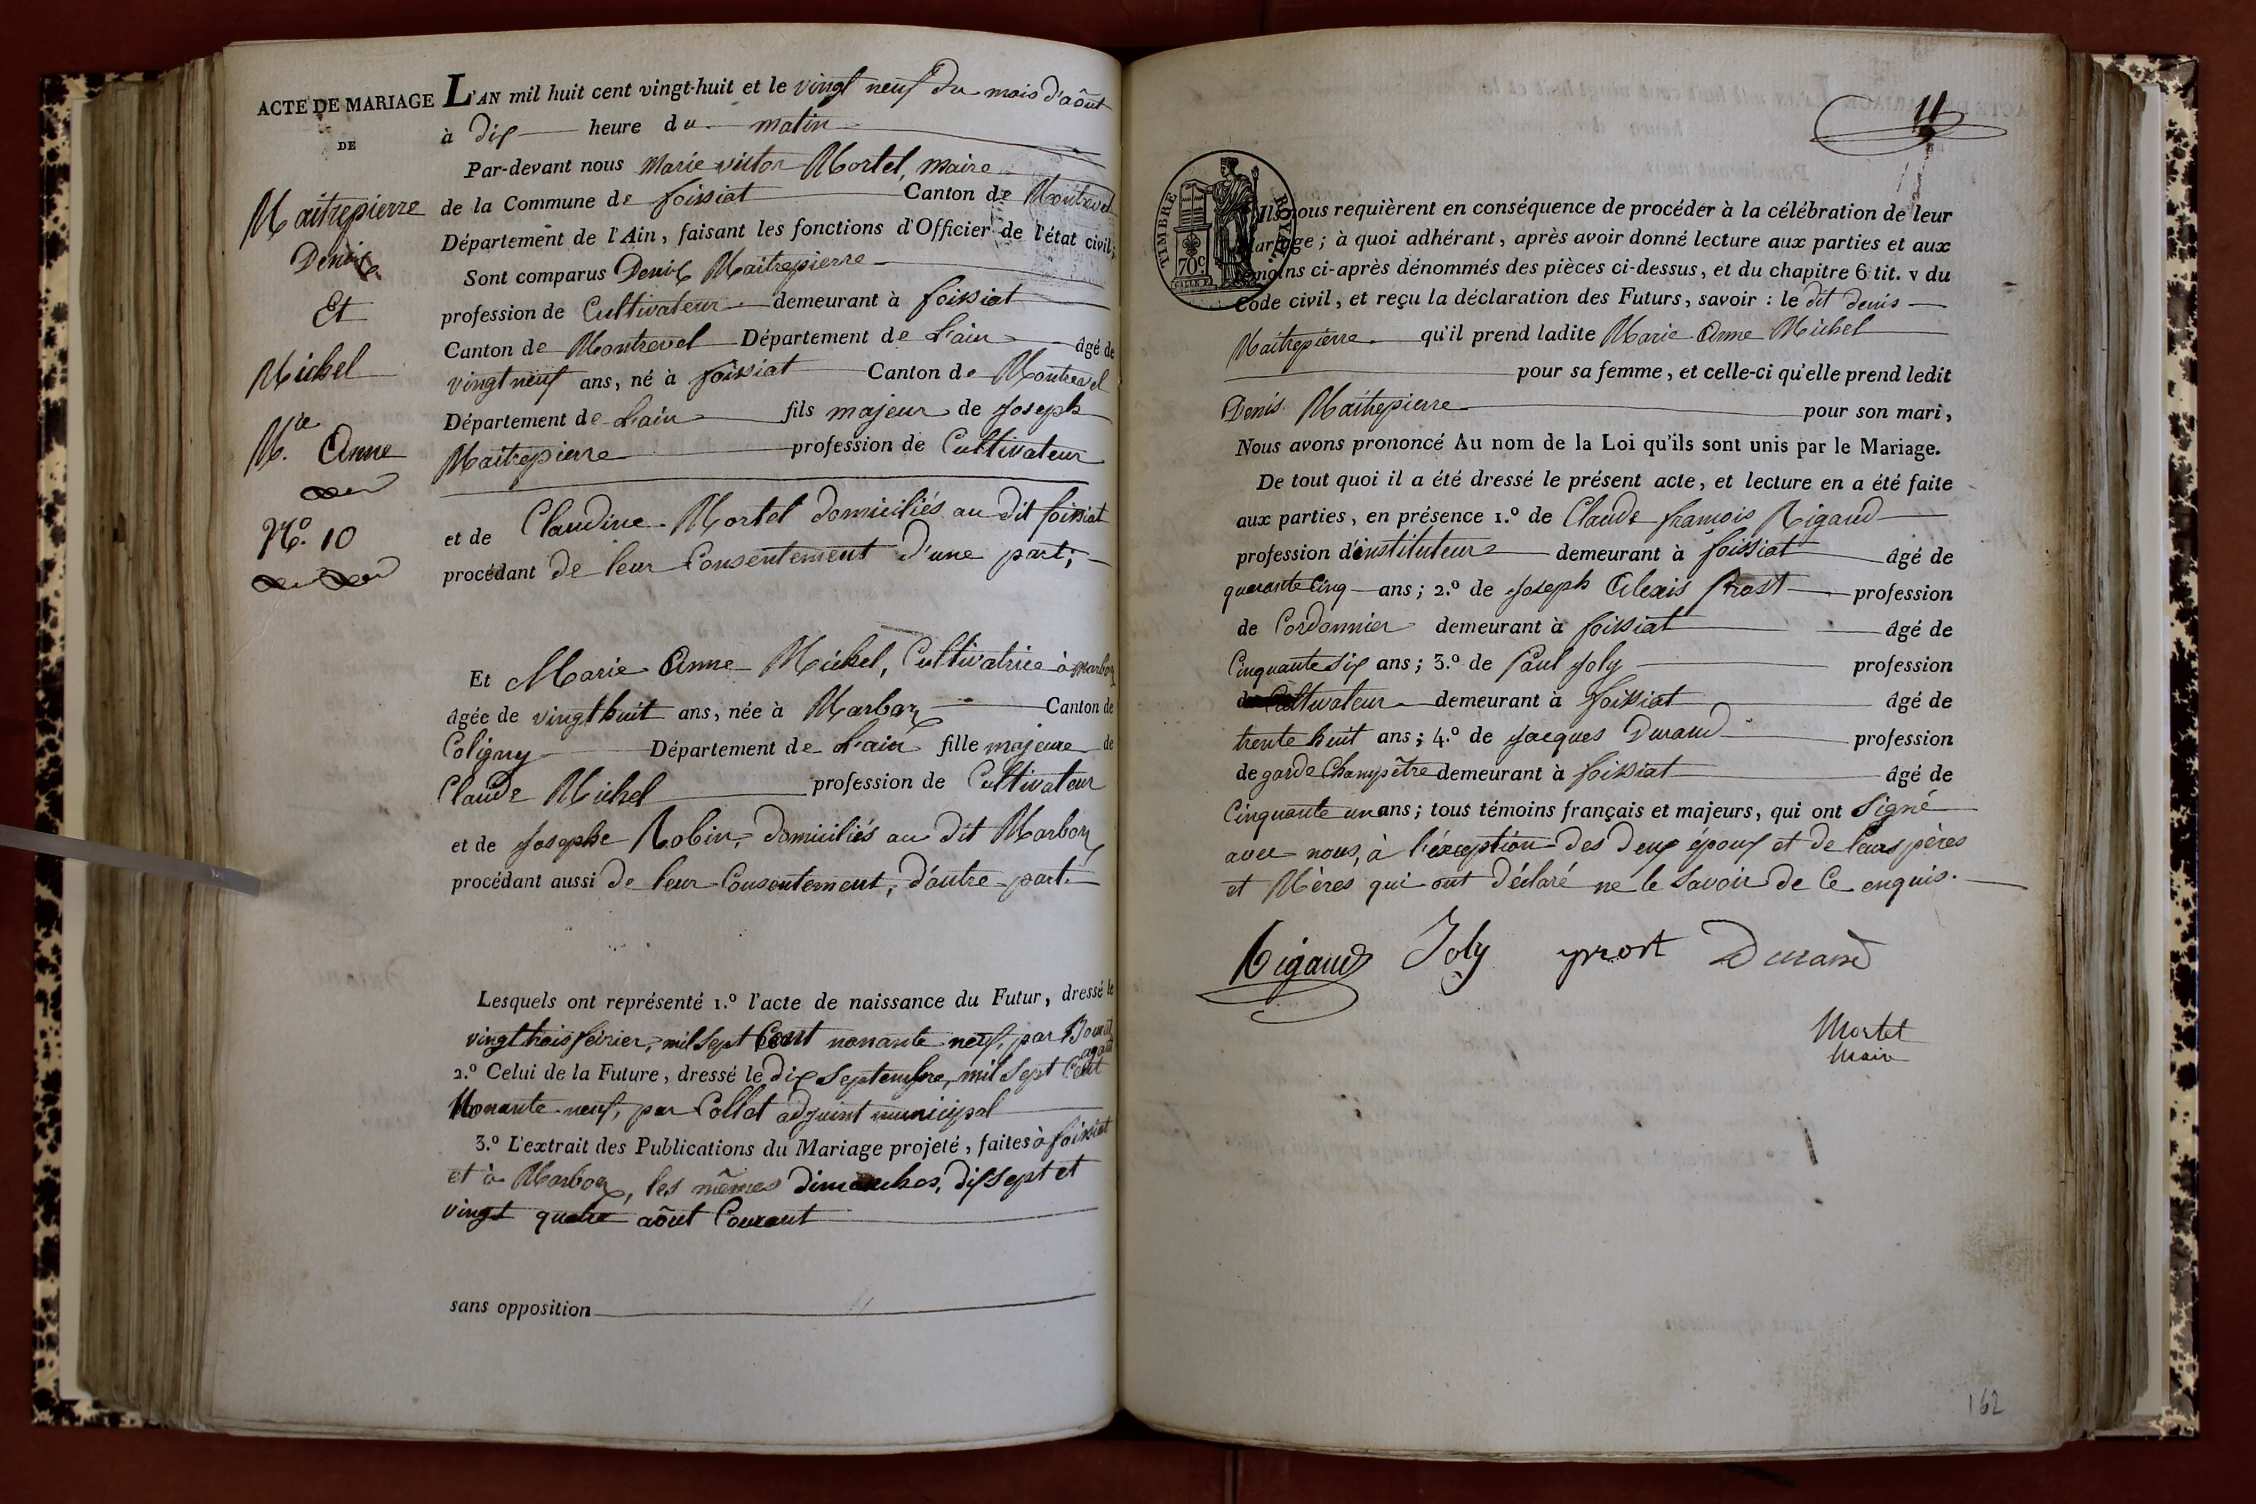 ACTE DE MARIAGE
DE
Maitrepierre
Denis
Et
Michel
M.ie Anne
N.o 10
L'AN mil huit cent vingt-huit et le vingt neuf du mois d'aôut
à dix heure du matin
Par-devant nous Marie victor Mortel, maire
de la Commune de foissiat Canton de Montrevel
Département de l'Ain, faisant les fonctions d'Officier de l'état civil;
Sont comparus Denis Maitrepierre
profession de Cultivateur demeurant à foissiat
Canton de Montrevel Département de L'ain âgé de
vingt neuf ans, né à foissiat Canton de Montrevel
Département de L'ain fils majeur de Joseph
Maitrepierre profession de Cultivateur
et de Claudine Mortel domiciliés au dit foissiat
procédant de leur Consentement d'une part;
Et Marie Anne Michel, Cultivatrice à Marboz
âgée de vingt huit ans, née à Marboz Canton de
Coligny Département de L'ain fille majeure de
Claude Michel profession de Cultivateur
et de Josephe Robin, domiciliés au dit Marboz
procédant aussi de leur Consentement, d'autre part.
Lesquels ont représenté 1.o l'acte de naissance du Futur, dressé le
vingt trois février, mil sept Cent nonante neuf, par
2.o Celui de la Future, dressé le dix Septembre, mil Sept Cent
Nonante neuf, par Collet adjoint municipal
3.o L'extrait des Publications du Mariage projeté, faites à foissiat
et à Marboz, les mêmes dimanches, dix sept et
vingt quatre aôut Courant
sans opposition
11
TIMBRE ROYAL
70c
Ils nous requièrent en conséquence de procéder à la célébration de leur
mariage; à quoi adhérant, après avoir donné lecture aux parties et aux
témoins ci-après dénommés des pièces ci-dessus, et du chapitre 6 tit. v du
Code civil, et reçu la déclaration des Futurs, savoir : le dit denis
Maitrepierre qu'il prend ladite Marie Anne Michel
pour sa femme, et celle-ci qu'elle prend ledit
Denis Maitrepierre pour son mari,
Nous avons prononcé Au nom de la Loi qu'ils sont unis par le Mariage.
De tout quoi il a été dressé le présent acte, et lecture en a été faite
aux parties, en présence 1.o de Claude françois Rigaud
profession d'instituteur demeurant à foissiat âgé de
quarante Cinq ans; 2.o de Joseph Alexis Prost profession
de Cordonnier demeurant à foissiat âgé de
Cinquante six ans; 3.o de Paul Joly profession
de Cultivateur demeurant à foissiat âgé de
trente huit ans; 4.o de Jacques Durand profession
de garde Champêtre demeurant à foissiat âgé de
Cinquante un ans; tous témoins français et majeurs, qui ont Signé
avec nous, à l'exception des deux époux et de leurs pères
et Mères qui ont déclaré ne le Savoir de Ce enquis.
Rigaud Joly prost Durand
Mortel
Maire
162